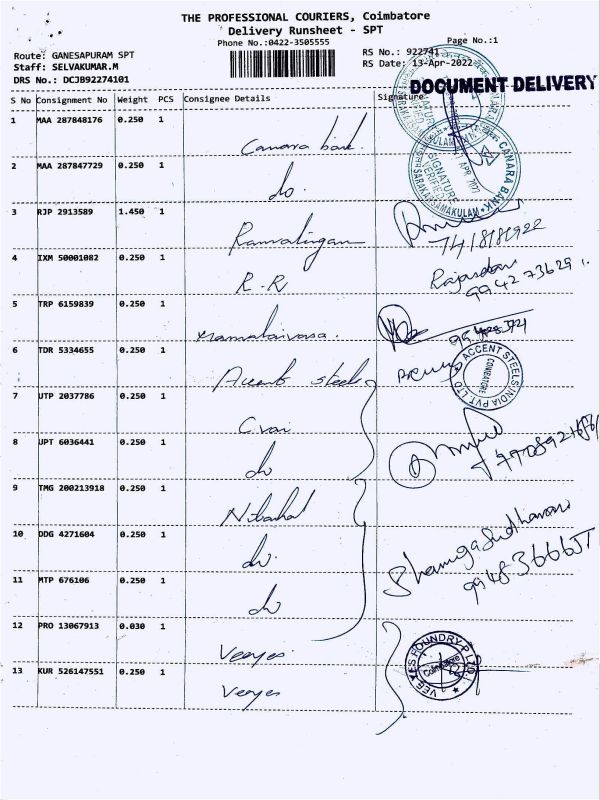 THE PROFESSIONAL COURIERS, Coimbatore
Delivery Runsheet - SPT
Phone No.:0422-3505555
Page No.:1
Route: GANESAPURAM SPT
RS No.: 922741
Staff: SELVAKUMAR.M
RS Date: 13-Apr-2022
DRS No.: DCJB92274101
DOCUMENT DELIVERY
S No Consignment No Weight PCS Consignee Details Signature
1 MAA 287848176 0.250 1 Canara bank
CANARA BANK
SIGNATURE VERIFIED
2 MAA 287847729 0.250 1 do.
3 RJP 2913589 1.450 1 Ramalingam
4 IXM 50001082 0.250 1 R-R
9942273629
5 TRP 6159839 0.250 1
6 TDR 5334655 0.250 1 Accent steels
ACCENT STEELS INDIA PVT. LTD
COIMBATORE
7 UTP 2037786 0.250 1 C.vai
8 UPT 6036441 0.250 1 do
9 TMG 200213918 0.250 1
10 DDG 4271604 0.250 1 do.
11 MTP 676106 0.250 1 do
12 PRO 13067913 0.030 1 Veeyes
VEE YES FOUNDRY P LTD
Coimbatore
13 KUR 526147551 0.250 1 Veeyes